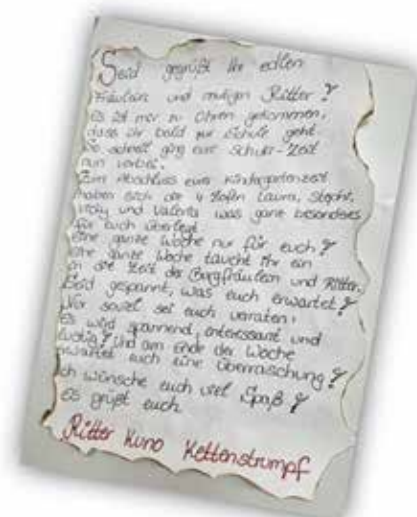 Seid gegrüßt Ihr edlen
Fräulein und mutigen Ritter!
Es ist mir zu Ohren gekommen,
dass ihr bald zur Schule geht.
So schnell ging eure Schuki-Zeit
nun vorbei.
Zum Abschluss eurer Kindergartenzeit
haben sich die 4 Zofen Laura, Stephi,
und Valeria was ganz besonderes
für euch überlegt.
Eine ganze Woche nur für euch!
Eine ganze Woche taucht ihr ein
in die Zeit der Burgfräulein und Ritter.
Seid gespannt, was euch erwartet!
Nur soviel sei euch verraten:
Es wird spannend, interessant und
lustig! Und am Ende der Woche
erwartet euch eine Überraschung!
Ich wünsche euch viel Spaß!
Es grüßt euch
Ritter Kuno Kettenstrumpf